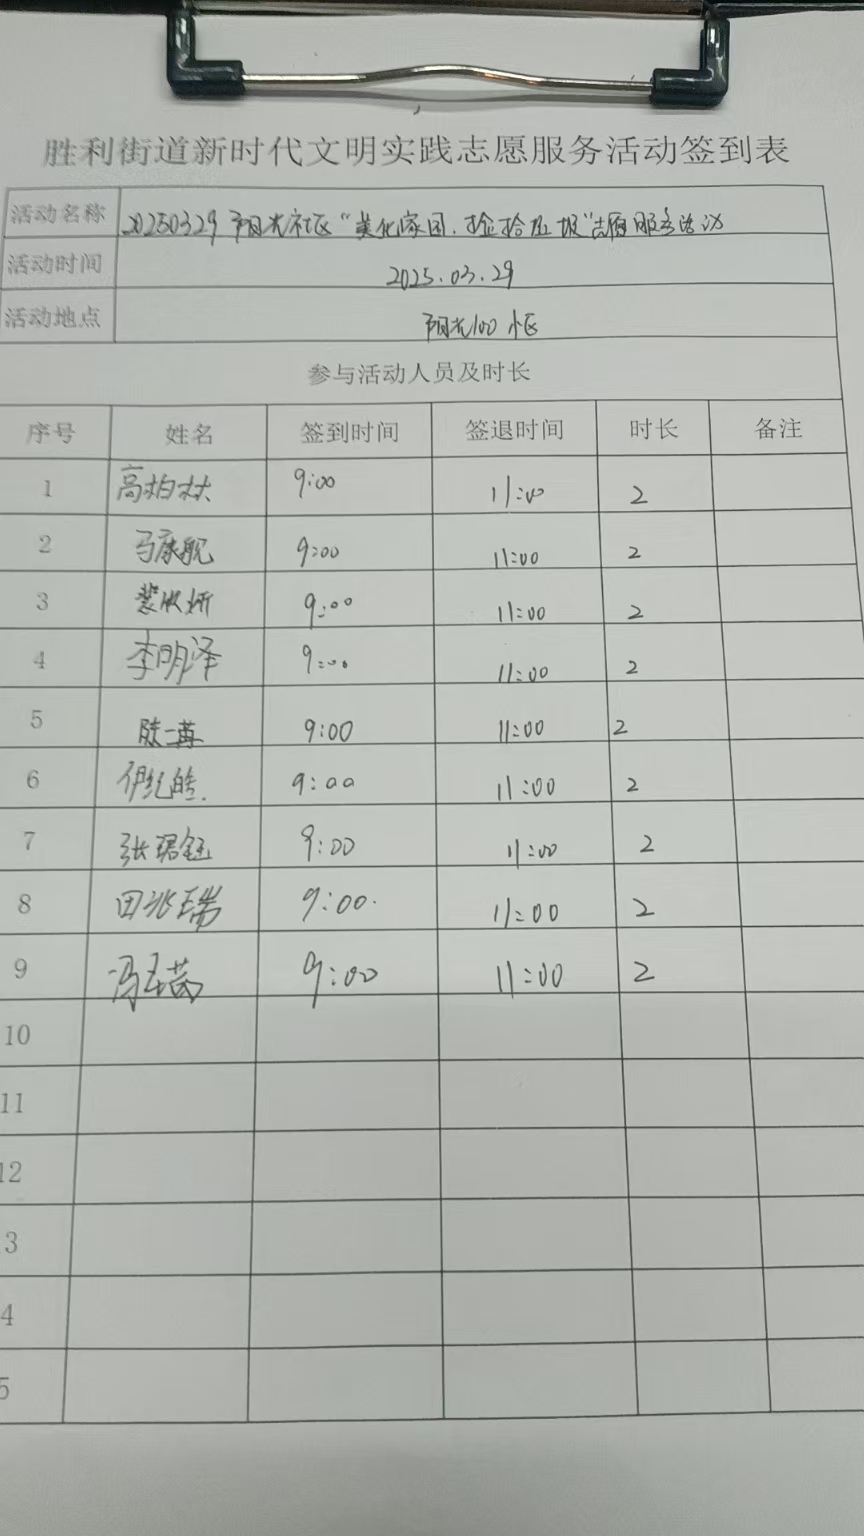 胜利街道新时代文明实践志愿服务活动签到表
活动名称 20250329 阳光社区“美化家园、捡拾垃圾”志愿服务活动
活动时间 2025.03.29
活动地点 阳光100小区
参与活动人员及时长
序号 姓名 签到时间 签退时间 时长 备注
1 高柏林 9:00 11:00 2
2 马康舰 9:00 11:00 2
3 裴欣妍 9:00 11:00 2
4 李明泽 9:00 11:00 2
5 陆一苒 9:00 11:00 2
6 9:00 11:00 2
7 张珺钰 9:00 11:00 2
8 田兆瑞 9:00 11:00 2
9 9:00 11:00 2
10
11
12
3
4
5